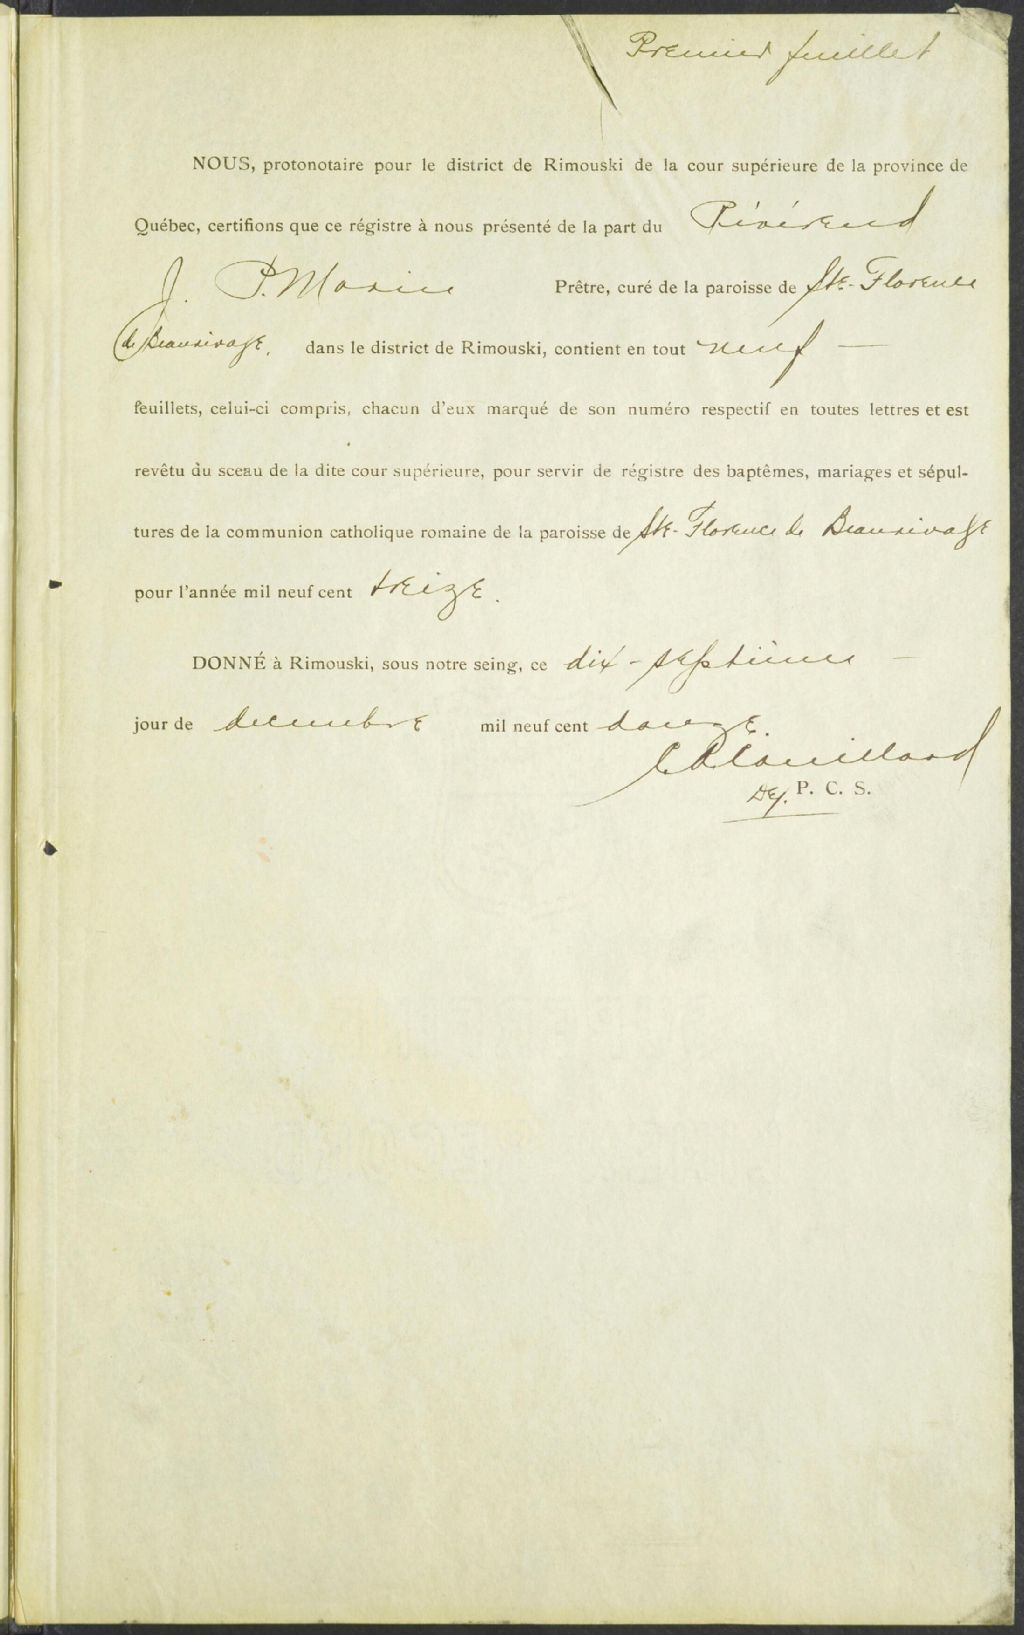 Premier feuillet
NOUS, protonotaire pour le district de Rimouski de la cour supérieure de la province de
Québec, certifions que ce régistre à nous présenté de la part du Révérend
J. P. Morin Prêtre, curé de la paroisse de Ste-Florence
de Beaurivage, dans le district de Rimouski, contient en tout neuf —
feuillets, celui-ci compris, chacun d'eux marqué de son numéro respectif en toutes lettres et est
revêtu du sceau de la dite cour supérieure, pour servir de régistre des baptêmes, mariages et sépul-
tures de la communion catholique romaine de la paroisse de Ste-Florence de Beaurivage
pour l'année mil neuf cent treize.
DONNÉ à Rimouski, sous notre seing, ce dix-septième —
jour de décembre mil neuf cent douze.
Dep. P. C. S.